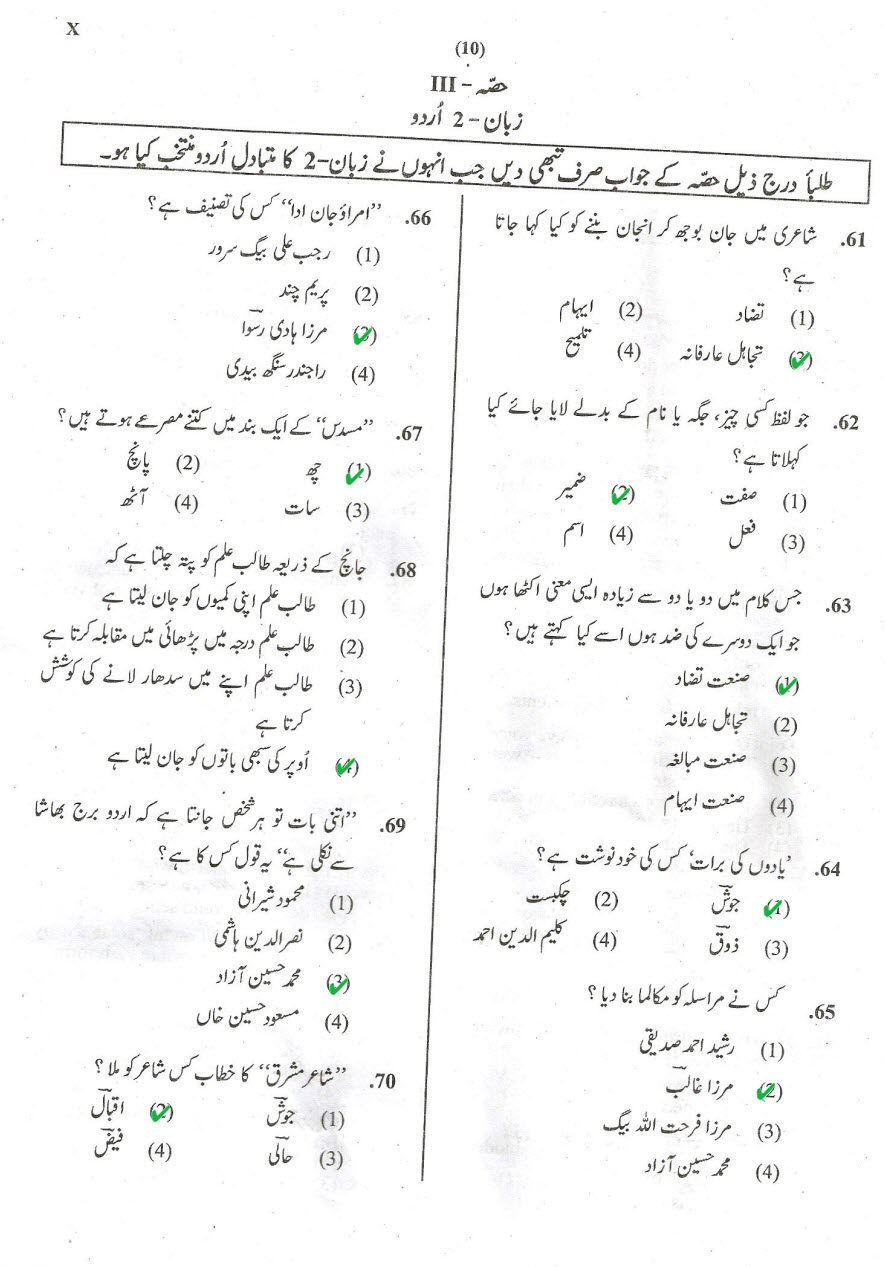 X
(10)
حصّہ - III
زبان - 2 اُردو
طلبأ درج ذیل حصّہ کے جواب صرف تبھی دیں جب انہوں نے زبان-2 کا متبادل اُردو منتخب کیا ہو۔
61. شاعری میں جان بوجھ کر انجان بننے کو کیا کہا جاتا
ہے؟
(1) تضاد (2) ایہام
(3) تجاہل عارفانہ (4) تلمیح
62. جو لفظ کسی چیز، جگہ یا نام کے بدلے لایا جائے کیا
کہلاتا ہے؟
(1) صفت (2) ضمیر
(3) فعل (4) اسم
63. جس کلام میں دو یا دو سے زیادہ ایسی معنی اکٹھا ہوں
جو ایک دوسرے کی ضد ہوں اسے کیا کہتے ہیں؟
(1) صنعت تضاد
(2) تجاہل عارفانہ
(3) صنعت مبالغہ
(4) صنعت ایہام
64. ’یادوں کی برات‘ کس کی خودنوشت ہے؟
(1) جوشؔ (2) چکبست
(3) ذوقؔ (4) کلیم الدین احمد
65. کس نے مراسلہ کو مکالما بنا دیا؟
(1) رشید احمد صدیقی
(2) مرزا غالبؔ
(3) مرزا فرحت اللہ بیگ
(4) محمد حسین آزاد
66. ’’امراؤ جان ادا‘‘ کس کی تصنیف ہے؟
(1) رجب علی بیگ سرور
(2) پریم چند
(3) مرزا ہادی رسوؔا
(4) راجندر سنگھ بیدی
67. ’’مسدس‘‘ کے ایک بند میں کتنے مصرعے ہوتے ہیں؟
(1) چھ (2) پانچ
(3) سات (4) آٹھ
68. جانچ کے ذریعہ طالب علم کو پتہ چلتا ہے کہ
(1) طالب علم اپنی کمیوں کو جان لیتا ہے
(2) طالب علم درجہ میں پڑھائی میں مقابلہ کرتا ہے
(3) طالب علم اپنے میں سدھار لانے کی کوشش
کرتا ہے
(4) اُوپر کی سبھی باتوں کو جان لیتا ہے
69. ’’اتنی بات تو ہر شخص جانتا ہے کہ اردو برج بھاشا
سے نکلی ہے‘‘ یہ قول کس کا ہے؟
(1) محمود شیرانی
(2) نصر الدین ہاشمی
(3) محمد حسین آزاد
(4) مسعود حسین خاں
70. ’’شاعر مشرق‘‘ کا خطاب کس شاعر کو ملا؟
(1) جوشؔ (2) اقبالؔ
(3) حالیؔ (4) فیضؔ